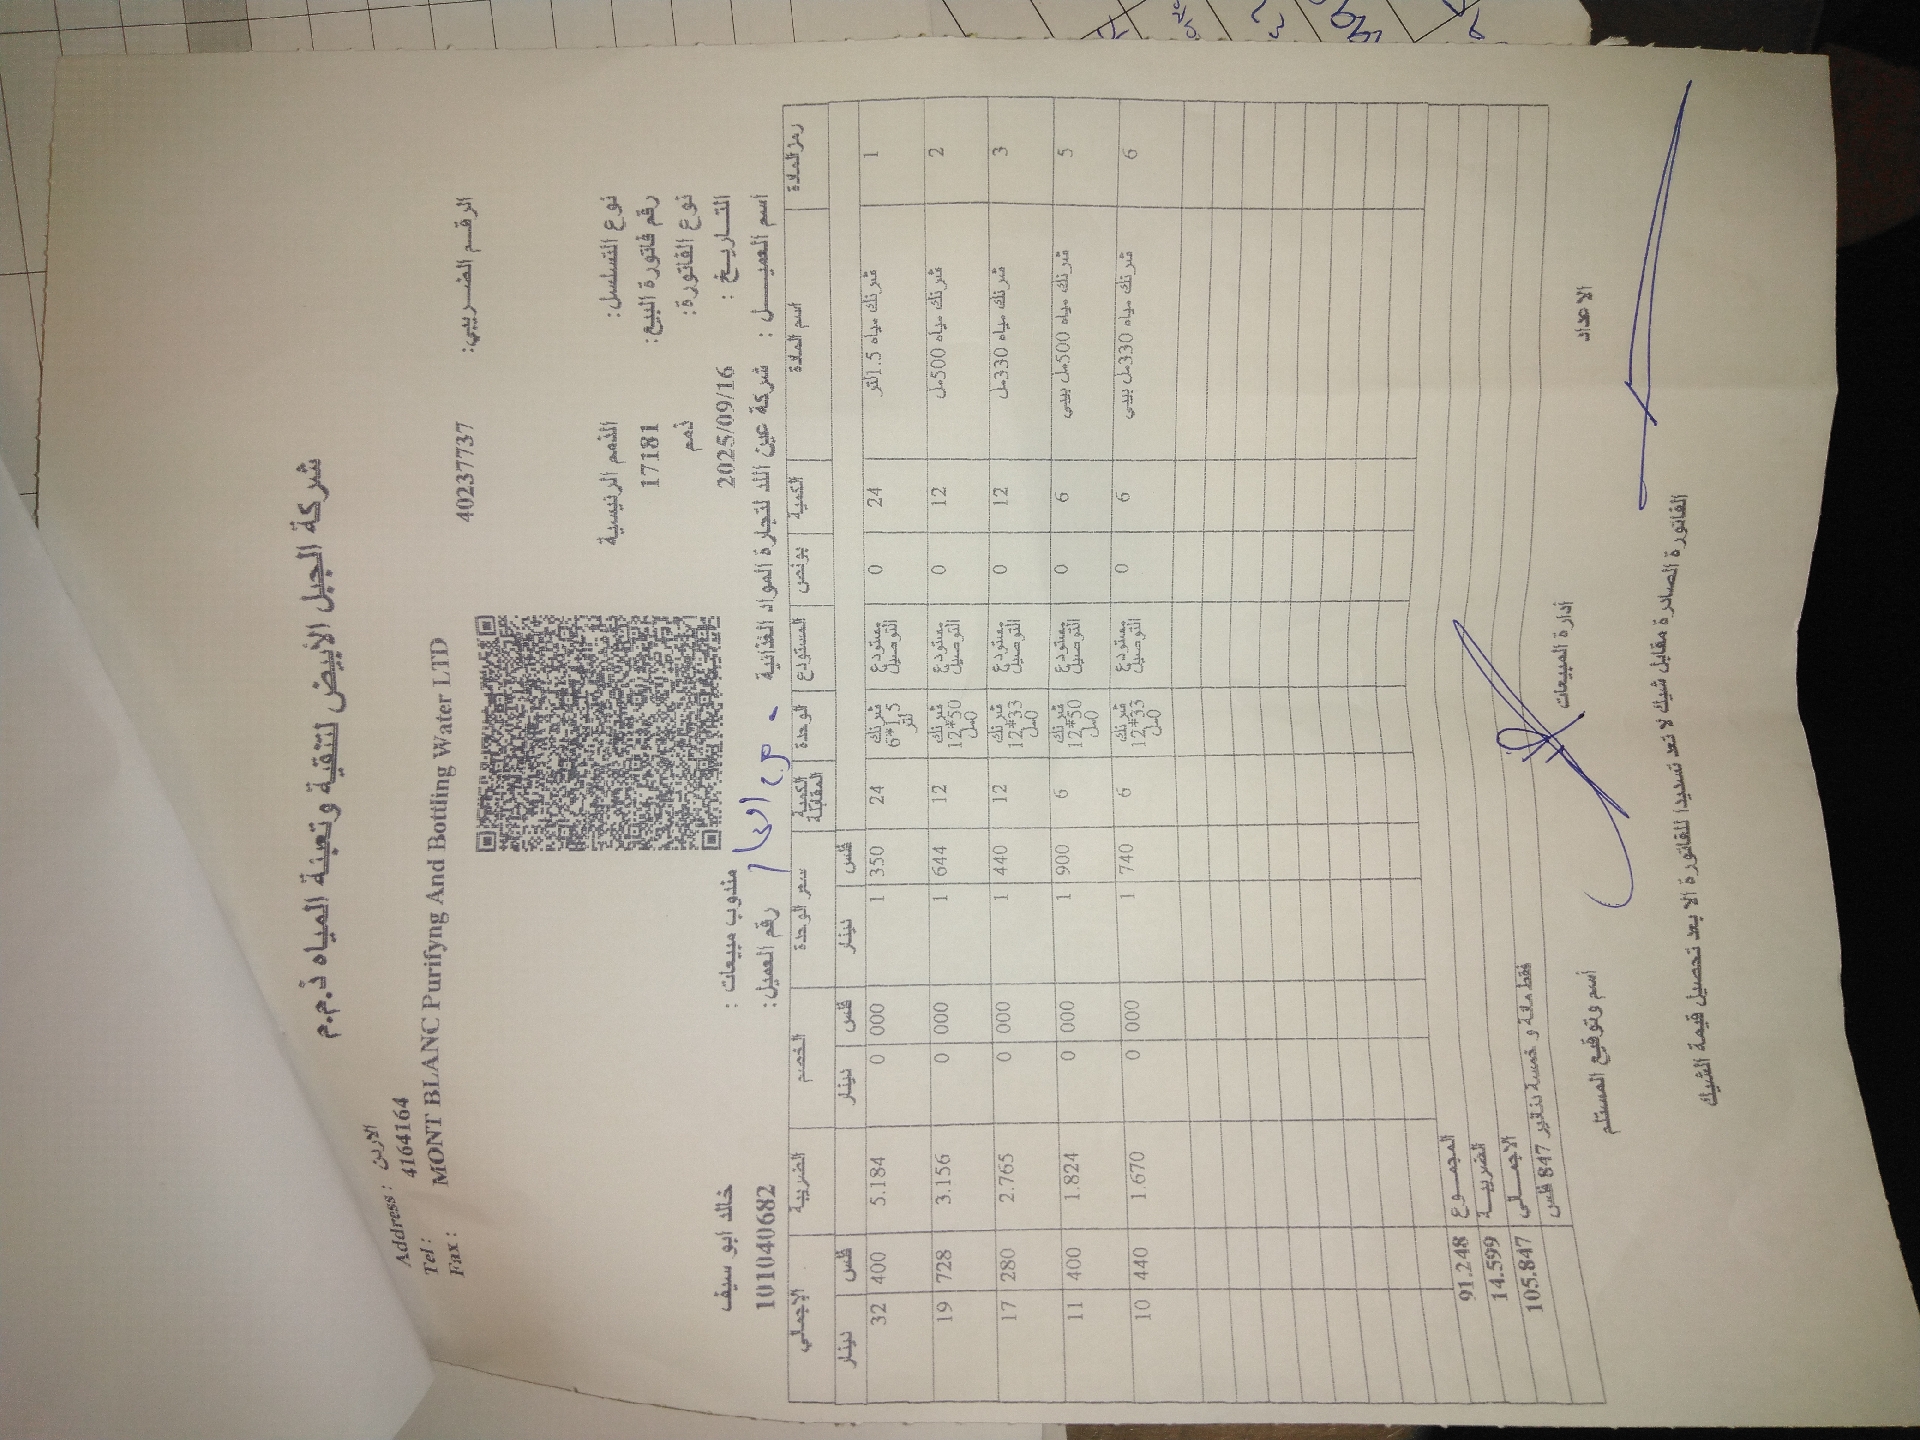 شركة الجبل الابيض لتنقية وتعبئة المياه ذ.م.م
Address : الاردن
Tel : 4164164
Fax :
MONT BLANC Purifyng And Bottling Water LTD
الرقم الضريبي: 40237737
نوع التسلسل: الذمم الرئيسية
رقم فاتورة البيع: 17181
نوع الفاتورة: ذمم
التاريخ : 2025/09/16
مندوب مبيعات : خالد ابو سيف
اسم العميل : شركة عين اللد لتجارة المواد الغذائية
رقم العميل: 101040682
رمز المادة اسم المادة الكمية بونص المستودع الوحدة الكمية المقابلة سعر الوحدة الخصم الضريبة الإجمالي
دينار فلس دينار فلس دينار فلس
1 شرنك مياه 1.5لتر 24 0 مستودع التوصيل شرنك 6*1.5 لتر 24 1 350 0 000 5.184 32 400
2 شرنك مياه 500مل 12 0 مستودع التوصيل شرنك 12*500مل 12 1 644 0 000 3.156 19 728
3 شرنك مياه 330مل 12 0 مستودع التوصيل شرنك 12*330مل 12 1 440 0 000 2.765 17 280
5 شرنك مياه 500مل بيبي 6 0 مستودع التوصيل شرنك 12*500مل 6 1 900 0 000 1.824 11 400
6 شرنك مياه 330مل بيبي 6 0 مستودع التوصيل شرنك 12*330مل 6 1 740 0 000 1.670 10 440
المجموع 91.248
الضريبة 14.599
الاجمالي 105.847
فقط مائة و خمسة دنانير 847 فلس
الاعداد ادارة المبيعات اسم وتوقيع المستلم
الفاتورة الصادرة مقابل شيك لا تعد تسديدا للفاتورة الا بعد تحصيل قيمة الشيك